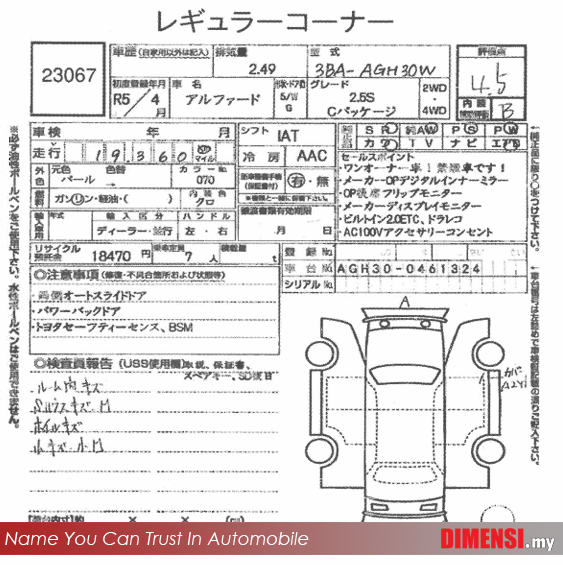 レギュラーコーナー
23067
車歴 (自家用以外は記入) 排気量 型式 評価点
2.49 3BA-AGH30W 4.5
初度登録年月 車名 ドア グレード 2WD
R5/4月 アルファード 5/W G 2.5S Cパッケージ 4WD 内装 B
車検 年 月 シフト IAT 純正 SR 純AW PS PW
走行 19,360 マイル 冷房 AAC カワ TV ナビ エアB
外色 元色 パール 色替 カラーNo 070
燃料 ガソリン・軽油・( ) 内装色 クロ
新車整備手帳 (保証書付) 有・無
※書類と一緒に御提出下さい
輸入車 年式 輸入区分 ハンドル
ディーラー・並行 左・右
譲渡書類有効期限
月 日
リサイクル預託金 18470円 乗車定員 7人 積載量 t
セールスポイント
・ワンオーナー車!禁煙車です!
・メーカーOPデジタルインナーミラー
・OP後席フリップモニター
・メーカーディスプレイモニター
・ビルトイン2.0ETC、ドラレコ
・AC100Vアクセサリーコンセント
登録No.
車台No. AGH30-0461324
シリアルNo.
◎注意事項 (修復・不具合箇所および状態等)
・両側オートスライドドア
・パワーバックドア
・トヨタセーフティーセンス、BSM
◎検査員報告 (USS使用欄) 取説、保証書、
スペアキー、SD後日
ルーム内キズ
ホイルキズ
A
カバー A2Y1
※必ず油性ボールペンをご使用下さい。水性ボールペンはご使用できません。
Name You Can Trust In Automobile
DIMENSI.my